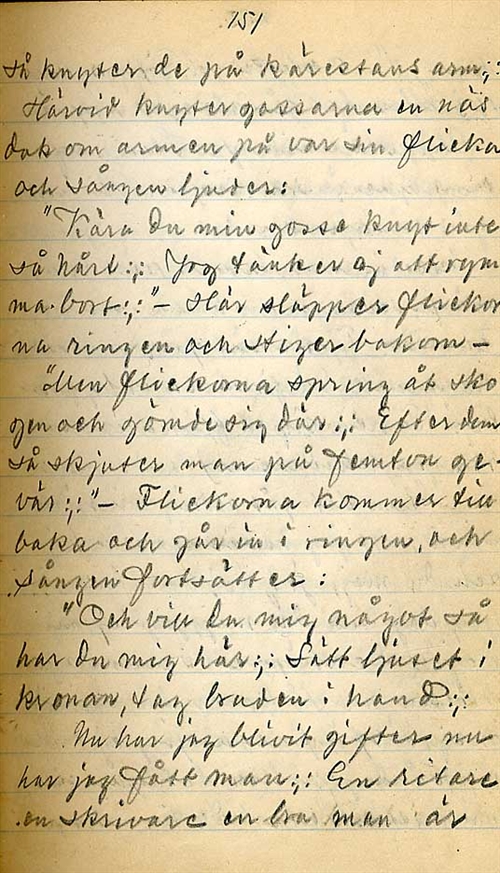 151
så knyter de på kärestans arm:,:
Härvid knyter gossarna en näs
duk om armen på var sin flicka
och sången ljuder:
"Kära du min gosse knyt inte
så hårt:,: Jag tänker ej att rym
ma bort:,:"– Här släpper flickor
na ringen och stiger bakom –
"Men flickorna spring åt sko
gen och gömde sig där:,: Efter dem
så skjuter man på femton ge-
vär:,:"– Flickorna kommer till
baka och går in i ringen, och
sången fortsätter:
"Och vill du mig något så
har du mig här:,: Sätt ljuset i
kronan, tag bruden i hand:,:
Nu har jag blivit gifter nu
har jag fått man:,: En ritare
en skrivare en bra man är